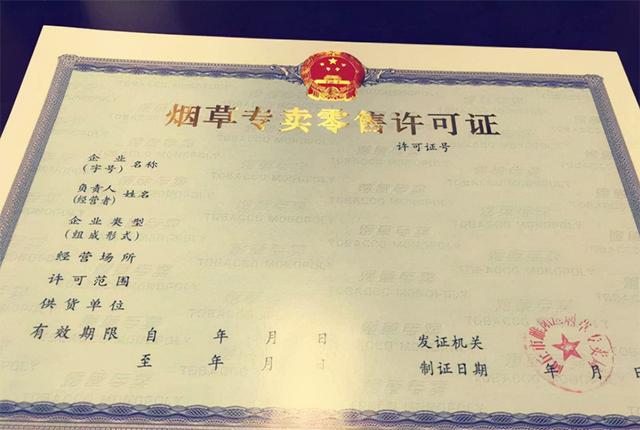 烟草专卖零售许可证
许可证号
企业
(字号)
名称
负责人
(经营者)
姓名
企业类型
(组成形式)
经营场所
许可范围
供货单位
有效期限 自 年 月 日
至 年 月 日
发证机关
制证日期 年 月 日
烟草专卖
TOBACCO MONOPOLY